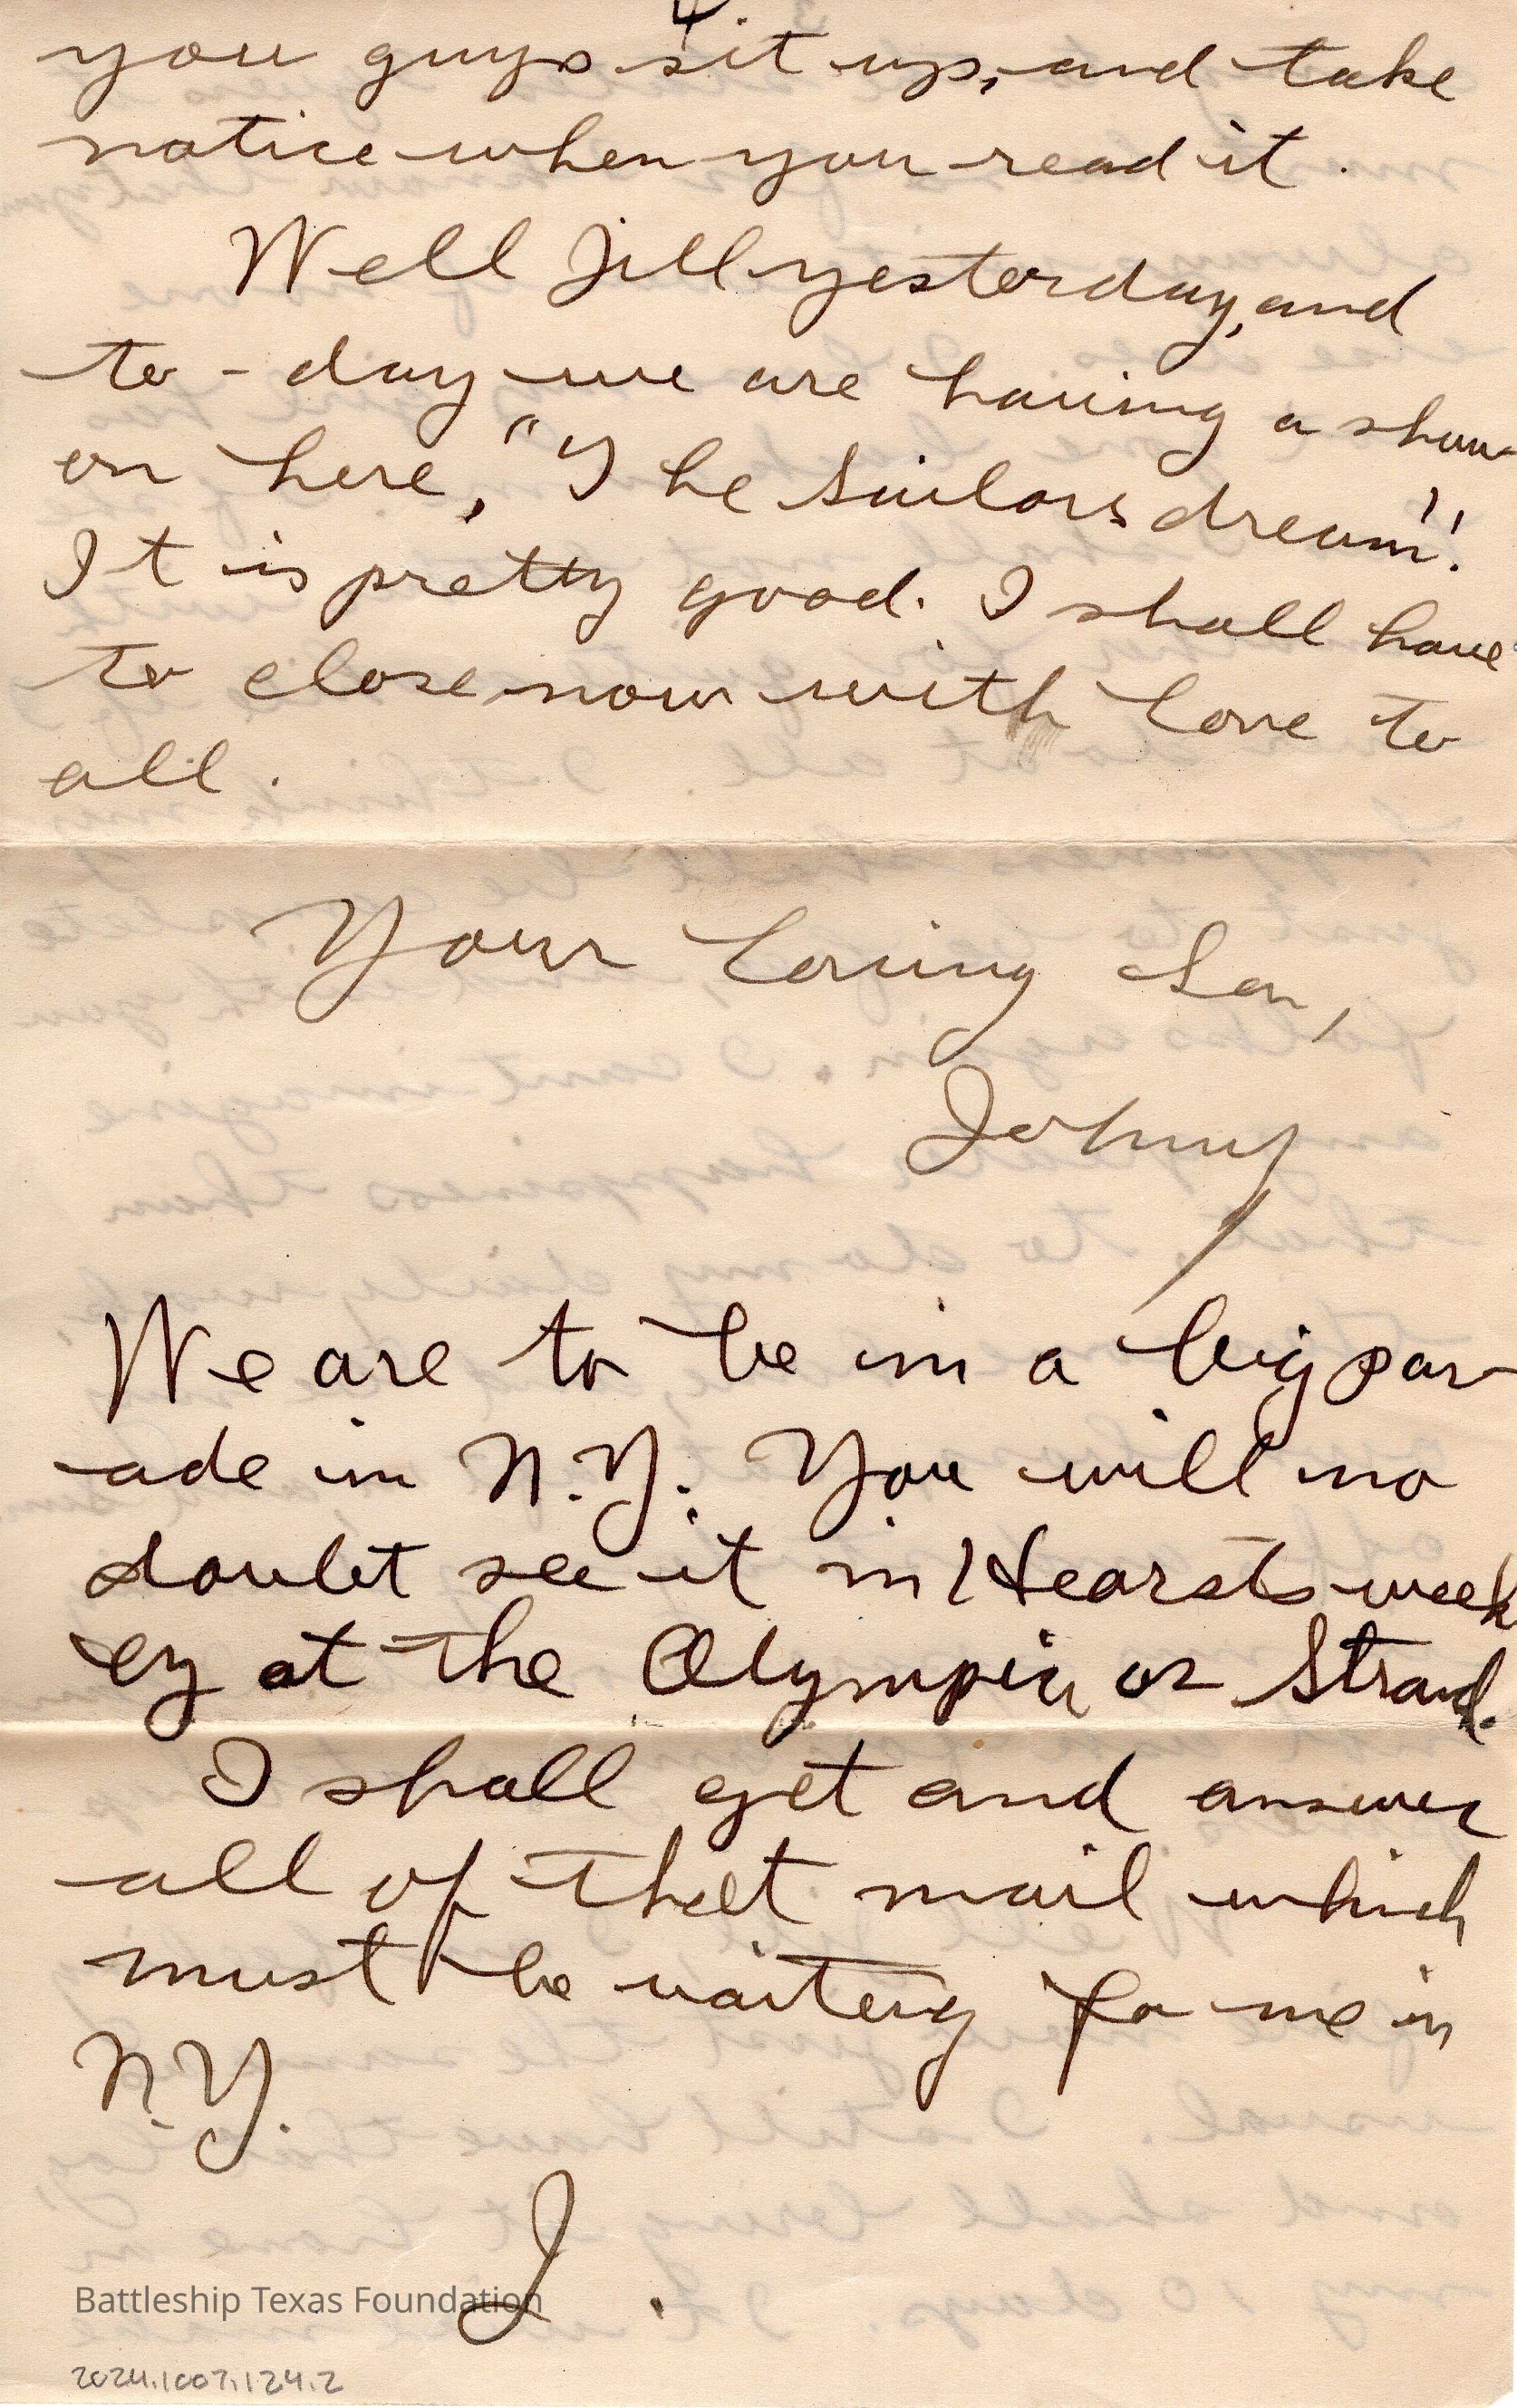 4
you guys sit up, and take
notice when you read it.
Well Jill yesterday, and
to-day we are having a show
on here, "The Sailors dream".
It is pretty good. I shall have
to close now with love to
all.
Your loving Son,
Johny
We are to be in a big par-
ade in N.Y. You will no
doubt see it in Hearsts week
ly at the Olympic or Strand.
I shall get and answer
all of thet mail which
must be waiteng for me in
N.Y.
J.
Battleship Texas Foundation
2024.1007.124.2